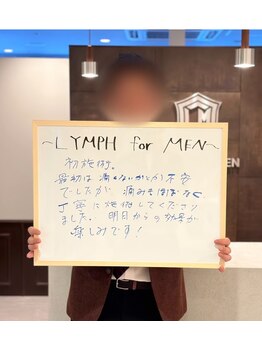 ~LYMPH for MEN~
初施術。
最初は痛くないかとか不安
でしたが、痛みもほぼなく
丁寧に施術してください
ました。明日からの効果が
楽しみです！
MEN